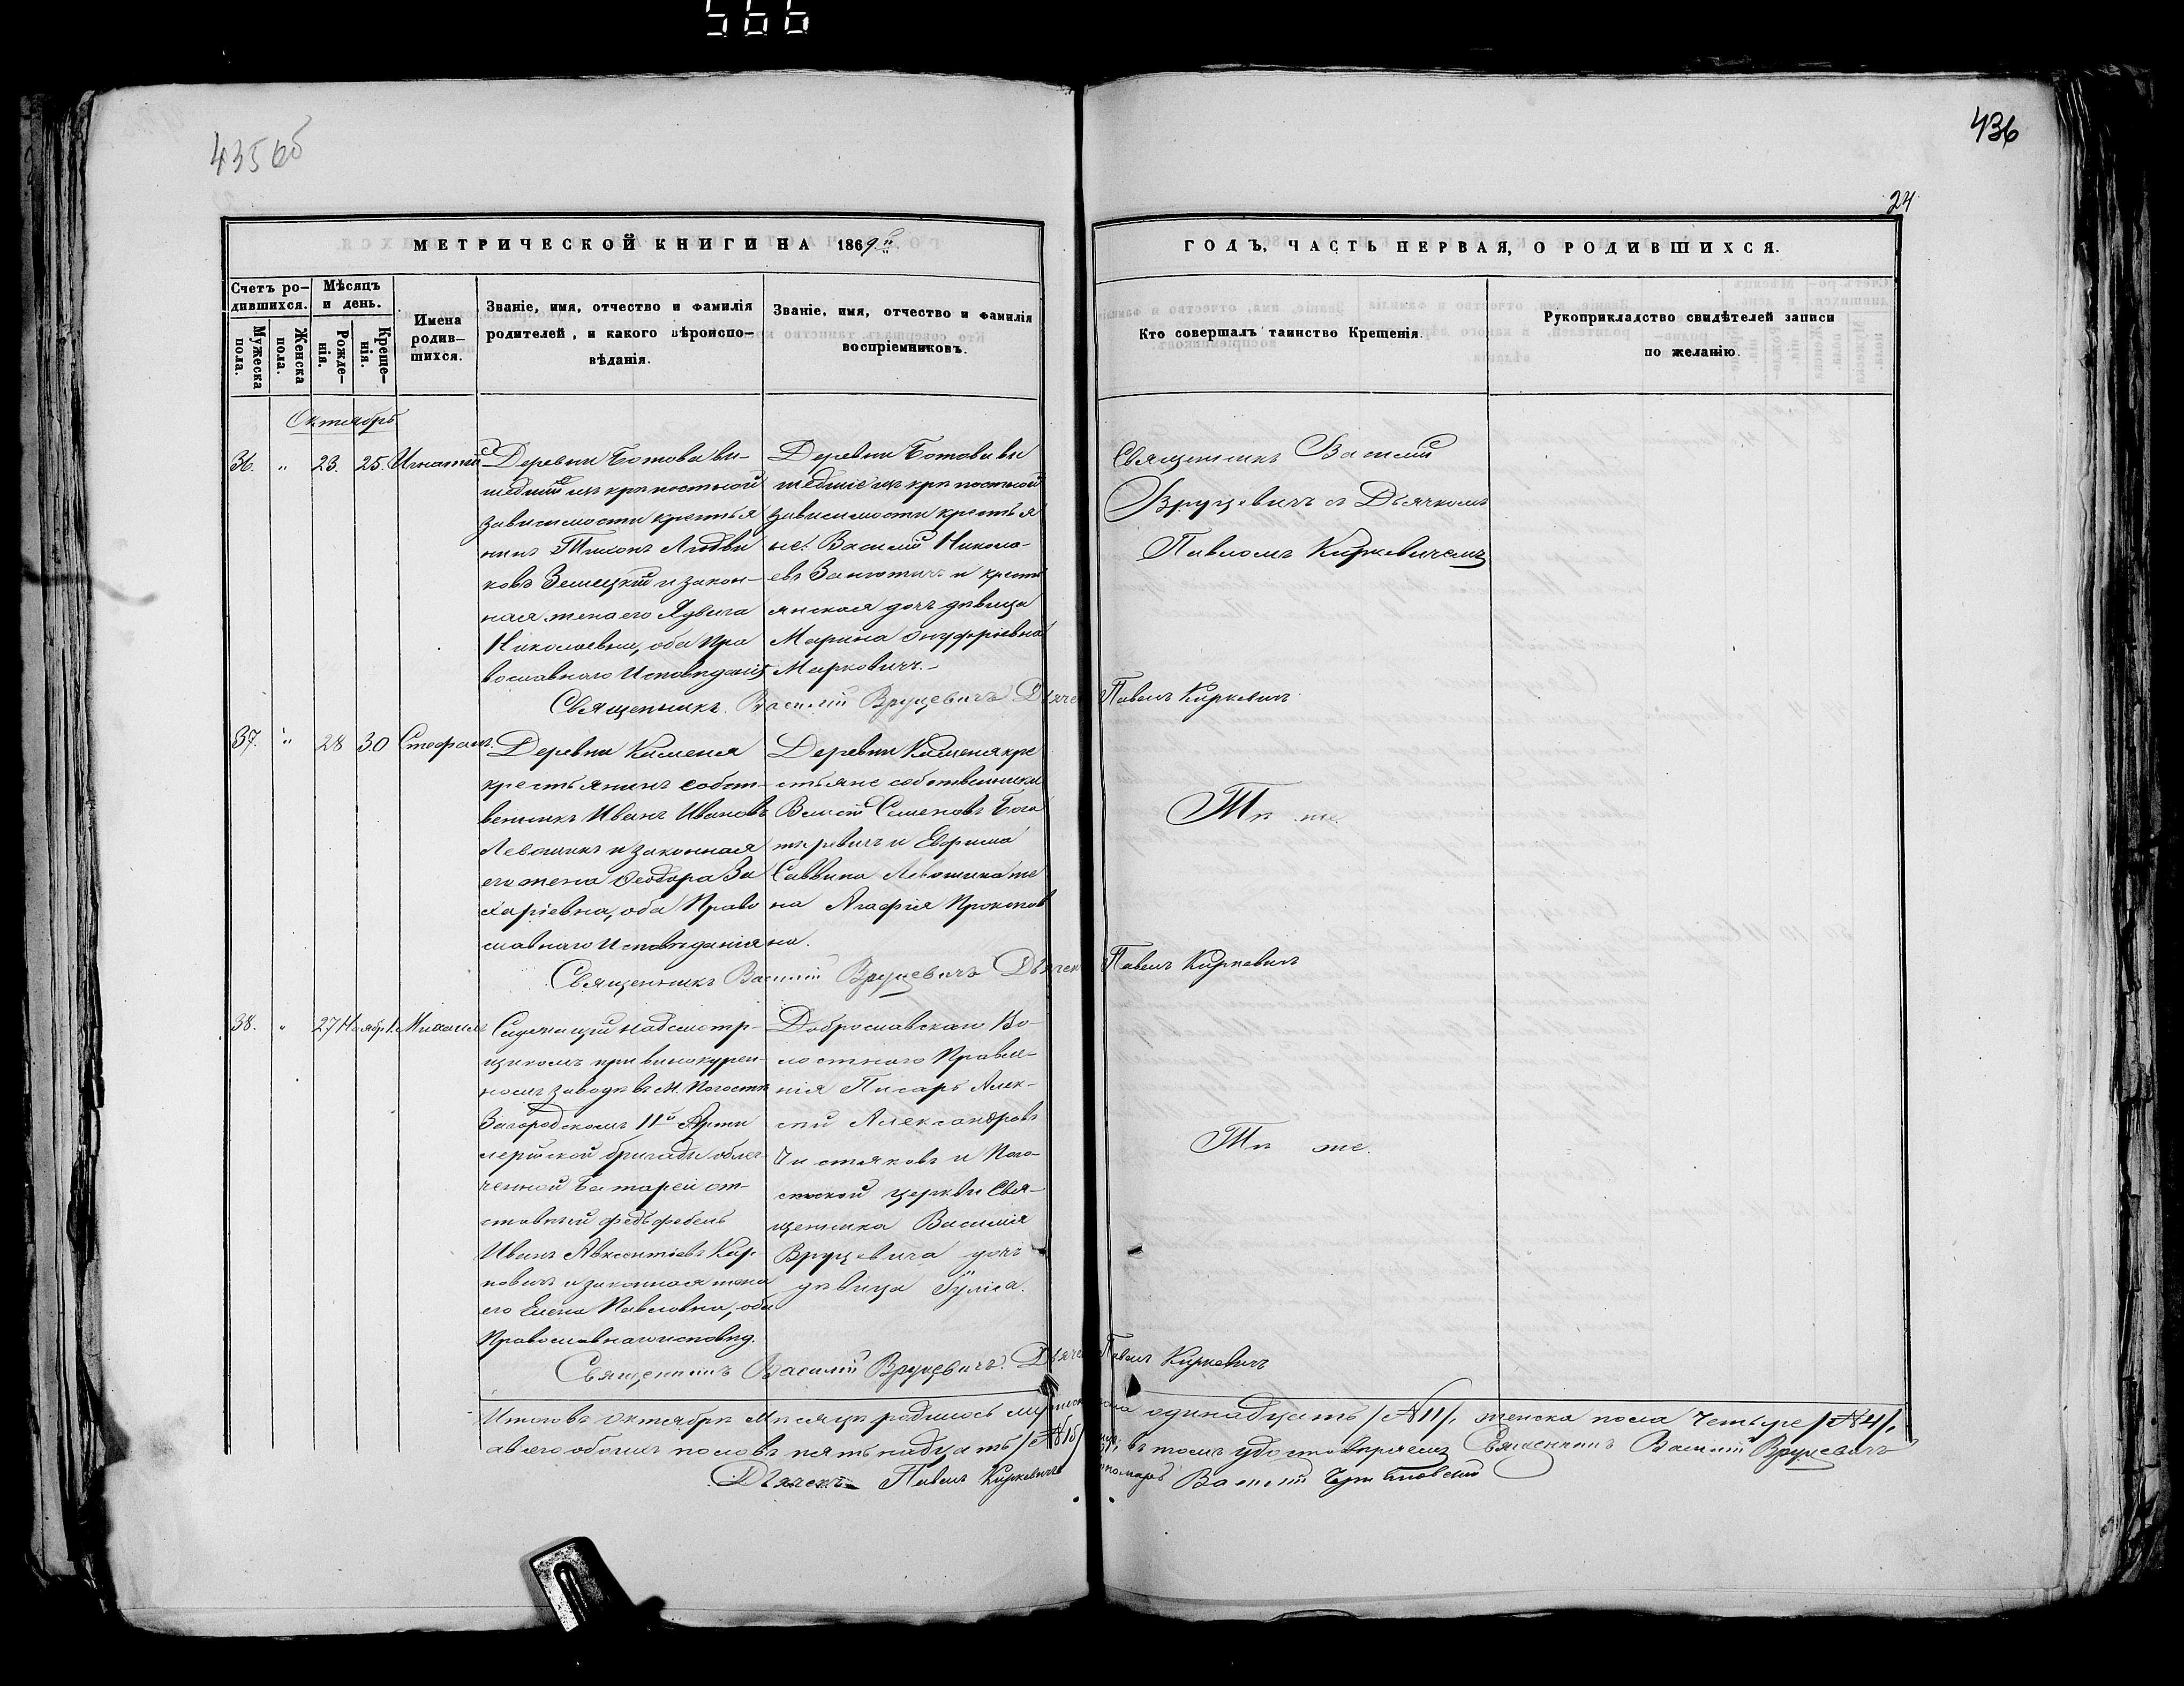 566
435об
436
24
МЕТРИЧЕСКОЙ КНИГИ НА 1869й
ГОДЪ, ЧАСТЬ ПЕРВАЯ, О РОДИВШИХСЯ.
Счетъ ро-
дившихся.
Мужеска
пола.
Женска
пола.
Мѣсяцъ
и день.
Рожде-
нія.
Креще-
нія.
Имена
родив-
шихся.
Званіе, имя, отчество и фамилія
родителей, и какого вѣроиспо-
вѣданія.
Званіе, имя, отчество и фамилія
воспріемниковъ.
Кто совершалъ таинство Крещенія.
Рукоприкладство свидѣтелей записи
по желанію.
Октябрь
36. " 23. 25. Игнатій
Деревни Ботова вы-
шедшій изъ крѣпостной
зависимости крестья
нинъ Тихонъ
Земецкій и закон-
ная жена его Ядвига
Николаевна, оба Пра
вославнаго Исповѣданія
Деревни Ботова вы
шедшіе изъ крѣпостной
зависимости крестья
не: Василій Никола-
евъ и кресть
янская дочь дѣвица
Марина Онуфріевна
Марковичъ.-
Священникъ Василій
Вруцевичъ съ Дьячкомъ
Павломъ Киркевичемъ
Священникъ Василій Вруцевичъ Дьячекъ Павелъ Киркевичъ
37. " 28 30 Стефанъ.
Деревни Каменя
крестьянинъ собст-
венникъ Иванъ Ивановъ
Левошикъ и законная
его жена Ѳеодора За
харіевна, оба Право
славнаго Исповѣданія
Деревни Каменя кре
стьяне собственники
Василій Семеновъ Бога
тыревичъ и Ефрема
Саввина Левошика же
на Агафія Прокопов
на.
Тѣ же.
Священникъ Василій Вруцевичъ Дьячекъ Павелъ Киркевичъ
38. " 27 Ноябр. 1. Михаилъ
надсмотр-
щикомъ при винокурен-
номъ заводѣ въ М. Погостѣ
Загородскомъ 11й Арти
лерійской бригады облег-
ченной батареи от-
ставный федьфебель
Иванъ Авксентіевъ Кар-
повичъ и законная жена
его Елена Павловна, оба
Православнаго исповѣд.
Доброславскаго Во-
лостнаго Правле-
нія Писарь Алек-
сѣй Александровъ
Чистяковъ и Пого-
стской церкви Свя-
щенника Василія
Вруцевича дочь
дѣвица Гуліа.
Тѣ же.
Священникъ Василій Вруцевичъ. Дьячекъ Павелъ Киркевичъ
Итого въ Октябрѣ Мѣсяцѣ родилось мужеска пола одинадцать /№11/, женска пола четыре /№4/,
а всего обоихъ половъ пятьнадцать /№15/ въ томъ удостовѣряемъ Священникъ Василій Вруцевичъ
Дьячекъ Павелъ Киркевичъ Пономарь Василій